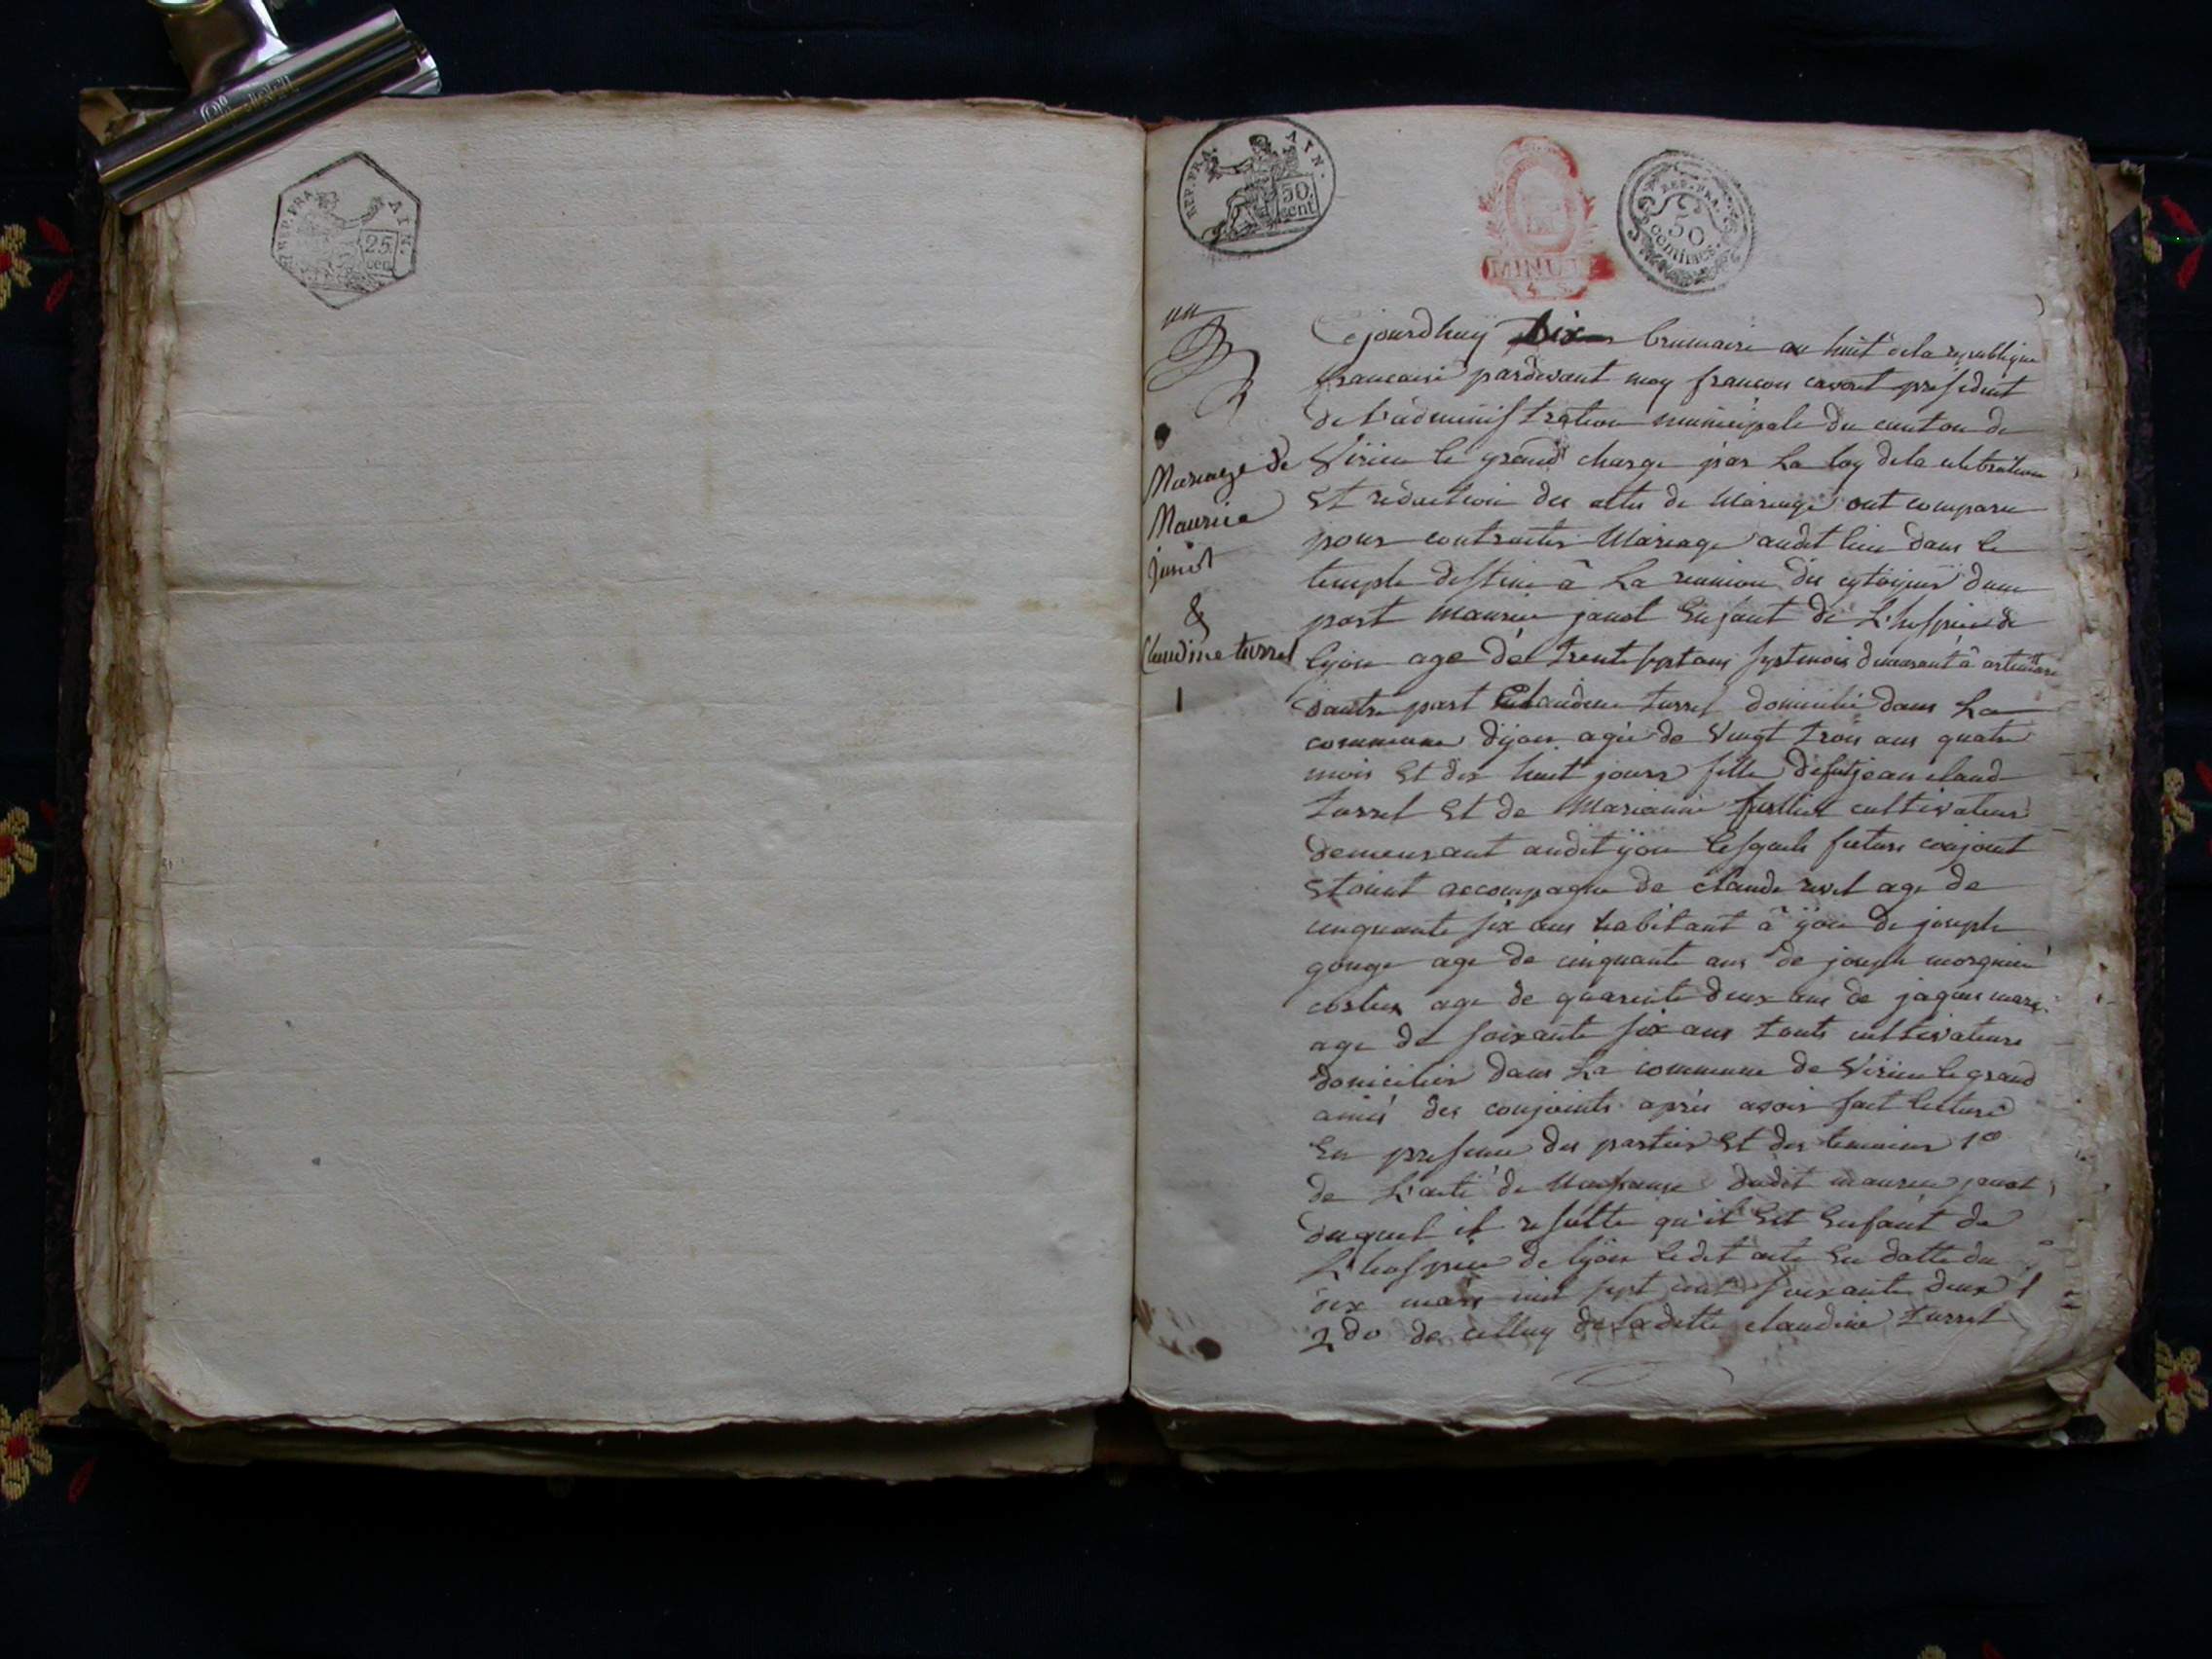 REP. FRA. AIN.
25 cen
REP. FRA. AIN.
50 cent
MINUTE
REP. FRA.
50
centimes.
un
Mariage de
Maurice
janot
&
Claudine turrel
1
Cejourdhuy dix brumaire an huit de la republique
francaise pardevant moy francois president
de l'administration municipale du canton de
Virieu le grand charge par La loy de la celebration
Et redaction des actes de Mariage ont comparu
pour contracter Mariage audit lieu dans le
temple destine â La reunion des cytoyens dune
part maurice janot Enfant de L'hospice de
lyon age de trente sept ans sept mois demeurant â
dautre part Claudine turrel domicilié dans La
commune dyon agée de Vingt trois ans quatre
mois Et dix huit jours fille defut jean claude
turrel Et de Marianne cultivateurs
demeurant audit yon lesquels futurs conjoint
Etoient accompagne de claude revel age de
cinquante six ans habitant â yon de joseph
gouge age de cinquante ans de joseph
age de quarente deux ans de jaques
age de soixante six ans touts cultivateurs
domicilies dans La commune de Virieu le grand
amis des conjoints après avoir fait lecture
En presence des parties Et des temoins 1o
de L'acte de Naissance dudit maurice janot
duquel il resulte qu'il Est Enfant de
L'hospice de lyon ledit acte En datte du
dix mars mil sept cent soixante deux
2do de celluy de ladette claudine turrel